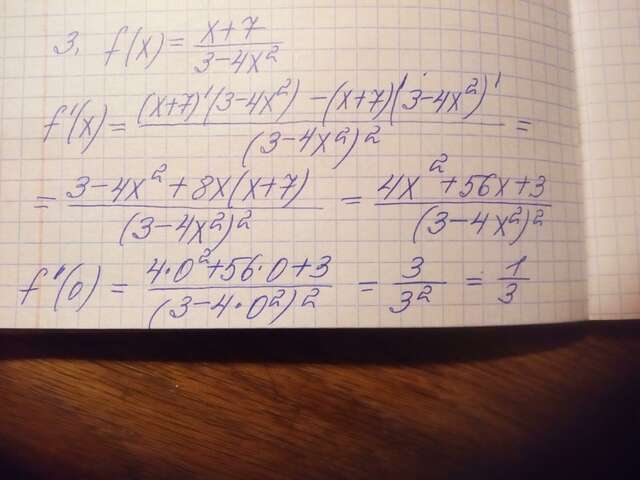 3. f(x) = (x+7)/(3-4x²)
f'(x) = ((x+7)'(3-4x²) - (x+7)(3-4x²)')/(3-4x²)² =
= (3-4x²+8x(x+7))/(3-4x²)² = (4x²+56x+3)/(3-4x²)²
f'(0) = (4·0²+56·0+3)/(3-4·0²)² = 3/3² = 1/3